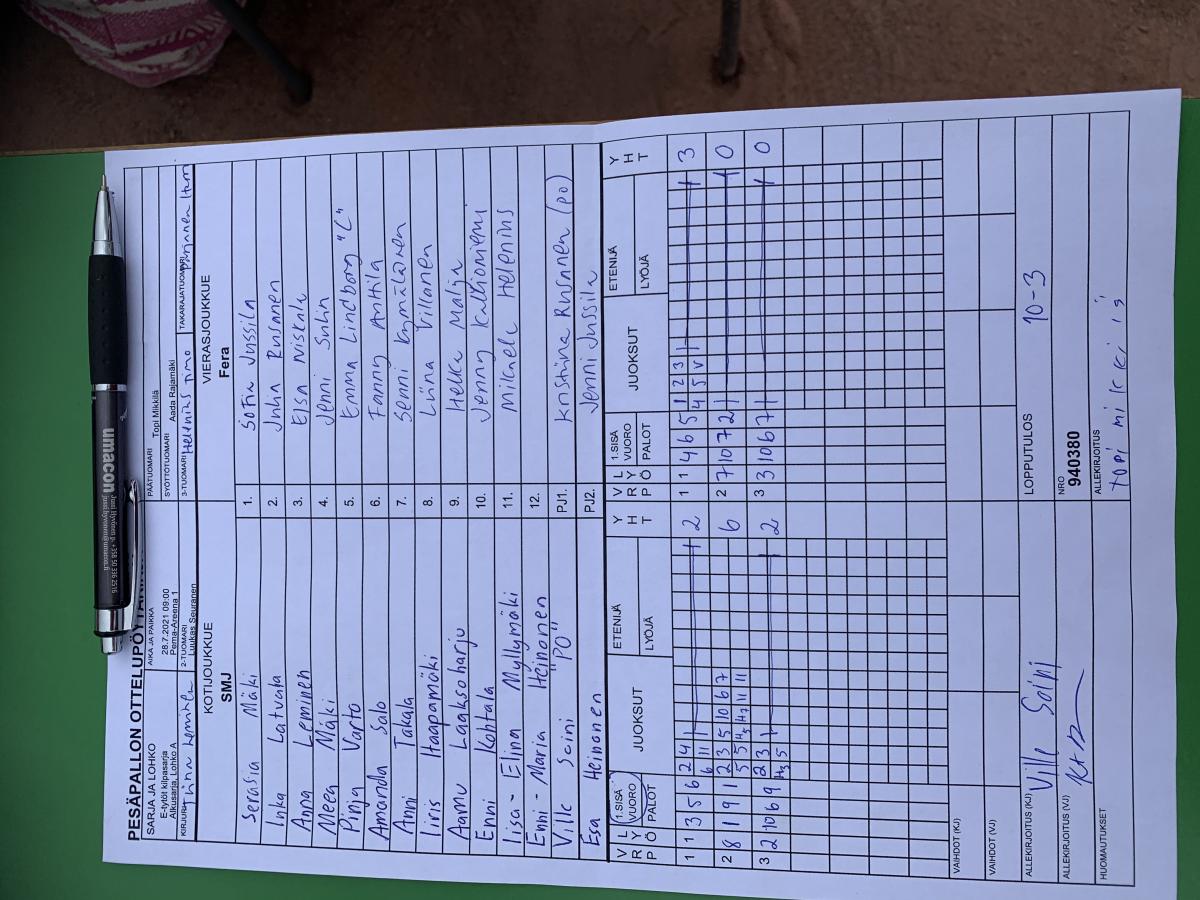 PESÄPALLON OTTELUPÖYTÄKIRJA
SARJA JA LOHKO
E-tytöt kilpasarja
Alkusarja, Lohko A
AIKA JA PAIKKA
28.7.2021 09:00
Pema-Areena 1
PÄÄTUOMARI
Topi Mikkilä
SYÖTTÖTUOMARI
Aada Rajamäki
KIRJURI
Tiina Leminen
2-TUOMARI
Luukas Seuranen
3-TUOMARI
Helenius Timo
TAKARAJATUOMARI
KOTIJOUKKUE
SMJ
VIERASJOUKKUE
Fera
Serasia Mäki 1. Sofia Jussila
Inka Latvala 2. Juha Rusanen
Anna Leminen 3. Elsa Niskala
Meea Mäki 4. Jenni Suhin
Pinja Varto 5. Emma Lindborg "C"
Amanda Salo 6. Fanny Anttila
Anni Takala 7. Senni Kymäläinen
Iiris Haapamäki 8. Liina Villanen
Aamu Laaksoharju 9. Helka Malja
Enni Kohtala 10. Jenny Kallioniemi
Iisa-Elina Myllymäki 11. Mikaela Helenius
Enni-Maria Heinonen 12.
Ville Soini "PO" PJ1. Kristiina Rusanen (po)
Esa Heinonen PJ2. Jenni Jussila
V R P L Y Ö 1.SISÄ VUORO PALOT JUOKSUT ETENIJÄ LYÖJÄ Y H T V R P L Y Ö 1.SISÄ VUORO PALOT JUOKSUT ETENIJÄ LYÖJÄ Y H T
1 1 3 5 6 2 4 1 2 1 1 4 6 5 1 2 3 3
6 11 4 5 V
2 8 1 9 1 2 3 5 10 6 7 6 2 7 10 7 2 0
5 5 H5 H7 11 11
3 2 10 6 9 2 3 2 3 3 10 6 7 0
H3 5
VAIHDOT (KJ)
VAIHDOT (VJ)
ALLEKIRJOITUS (KJ)
Ville Soini
LOPPUTULOS
10-3
ALLEKIRJOITUS (VJ)
NRO
940380
HUOMAUTUKSET
ALLEKIRJOITUS
topi mikki
umacon
Jussi Hyvönen p. +358 50 336 2516
jussi.hyvonen@umacon.fi